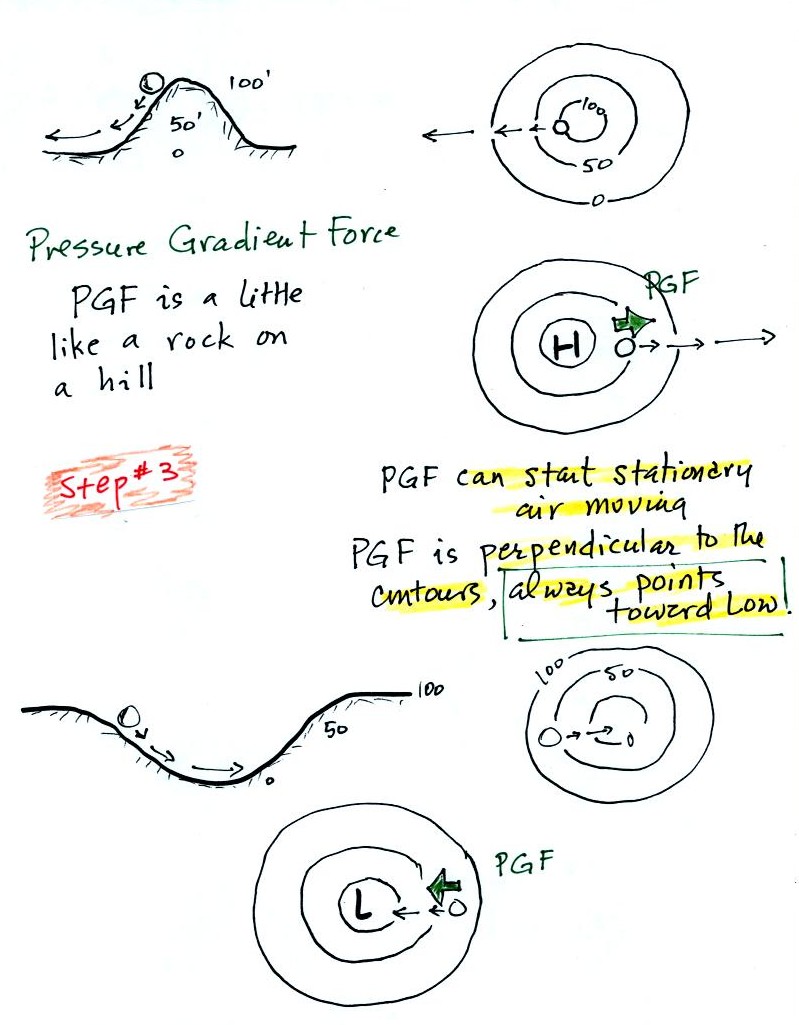 100'
50'
0
100
50
0
Pressure Gradient Force
PGF is a little
like a rock on
a hill
PGF
H
Step #3
PGF can start stationary
air moving
PGF is perpendicular to the
contours, always points
toward Low!
100
50
0
100
50
0
PGF
L